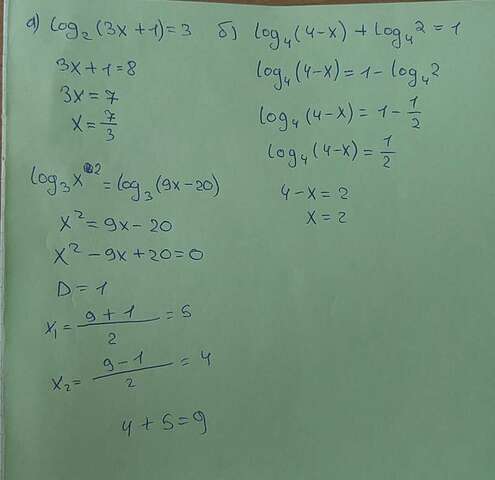 а) log₂(3x+1)=3
3x+1=8
3x=7
x=7/3
б) log₄(4-x)+log₄2=1
log₄(4-x)=1-log₄2
log₄(4-x)=1-1/2
log₄(4-x)=1/2
4-x=2
x=2
log₃x²=log₃(9x-20)
x²=9x-20
x²-9x+20=0
D=1
x₁=(9+1)/2=5
x₂=(9-1)/2=4
4+5=9